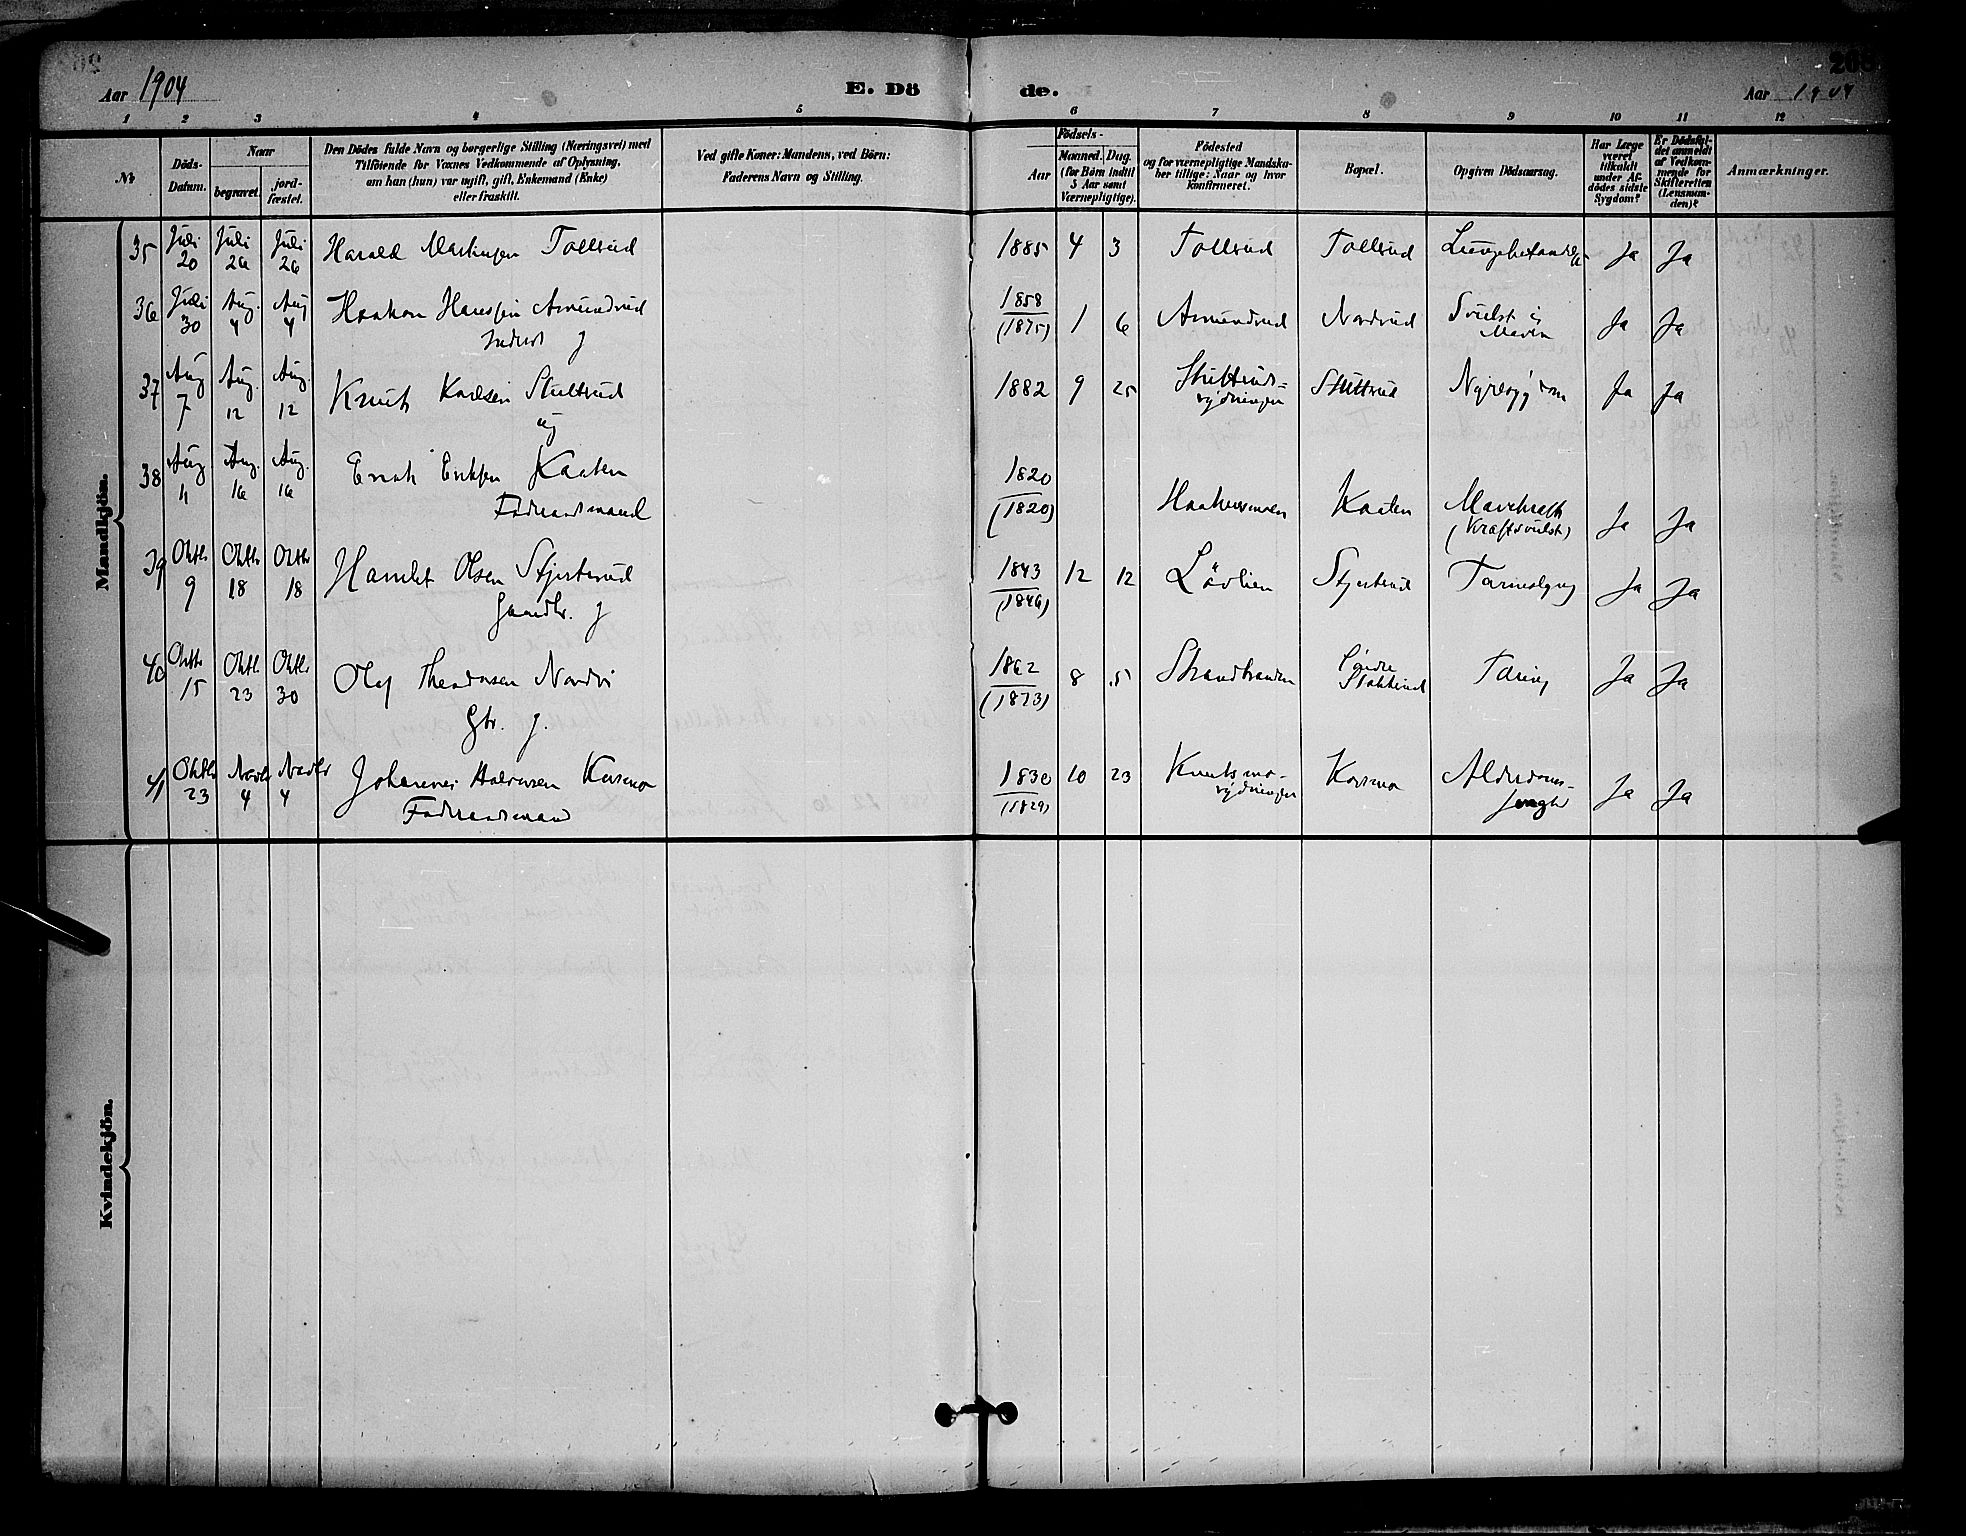 Aar 1904
E. Dö
de.
208
Aar 1904
1 2 3 4 5 6 7 8 9 10 11 12
№
Döds-
Datum.
Naar
begravet.
jord-
fæstet.
Den Dödes fulde Navn og borgerlige Stilling (Næringsvei) med
Tilföiende for Voxnes Vedkommende af Oplysning,
om han (hun) var ugift, gift, Enkemand (Enke)
eller fraskilt.
Ved gifte Koner: Mandens, ved Börn:
Faderens Navn og Stilling.
Födsels-
Aar
Maaned. Dag.
(for Börn indtil
5 Aar samt
Værnepligtige).
Födested
og for værnepligtige Mandska-
ber tillige: Naar og hvor
konfirmeret.
Bopæl.
Opgiven Dödsaarsag.
Har Læge
været
tilkaldt
under Af-
dödes sidste
Sygdom?
Er Dödsfal-
det anmeldt
af Vedkom-
mende for
Skifteretten
(Lensman-
den)?
Anmærkninger.
Mandkjön.
35 Juli 20 Juli 26 Juli 26 Harald Martinsen Tollsrud 1885 4 3 Tollsrud Tollsrud Ja Ja
36 Juli 30 Aug. 4 Aug 4 Haakon Hanssen Amundrud
g
1858
(1875) 1 6 Amundrud Nordrud Svulst i
Maven Ja Ja
37 Aug 7 Aug. 12 Aug. 12 Knut Karlsen Stuttrud
ug
1882 9 25 Stuttrud-
rydningen Stuttrud Nyresygdom Ja Ja
38 Aug 11 Aug. 16 Aug. 16 Erik Eriksen Kaaten
Föderaadsmand
1820
(1820) Kaaten Mavekræft
(Kræftsvulst) Ja Ja
39 Oktb 9 Oktb 18 Oktb 18 Olsen Stjertsrud
g
1843
(1846) 12 12 Lövlien Stjertsrud Ja Ja
40 Oktb 15 Oktb 23 Oktb 30 Olaf Theodorsen Nordvi
Gbr. g.
1862
(1873) 8 5 Strandbraaten Söndre
Tæring Ja Ja
41 Oktb 23 Novb 4 Novb 4 Johannes Halvorsen Korsmo
Föderaadsmand
1830
(1829) 10 23 Knutsmo-
rydningen Korsmo Alderdoms-
Ja Ja
Kvindekjön.